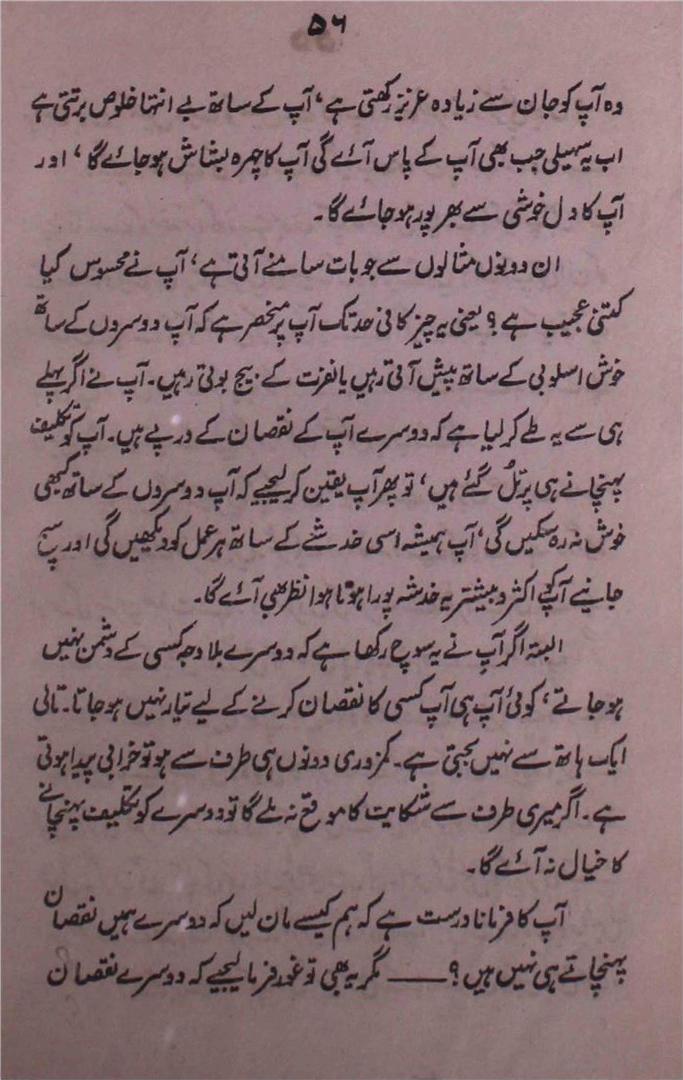 ۵۶
وہ آپ کو جان سے زیادہ عزیز رکھتی ہے، آپ کے ساتھ بے انتہا خلوص برتتی ہے
اب یہ سہیلی جب بھی آپ کے پاس آئے گی آپ کا چہرہ بشاش ہو جائے گا، اور
آپ کا دل خوشی سے بھر پور ہو جائے گا۔
ان دونوں مثالوں سے جو بات سامنے آتی ہے، آپ نے محسوس کیا
کتنی عجیب ہے؟ یعنی یہ چیز کافی حد تک آپ پر منحصر ہے کہ آپ دوسروں کے ساتھ
خوش اسلوبی کے ساتھ پیش آتی رہیں یا نفرت کے بیج بوتی رہیں۔ آپ نے اگر پہلے
ہی سے یہ طے کر لیا ہے کہ دوسرے آپ کے نقصان کے درپے ہیں۔ آپ کو تکلیف
پہنچانے ہی پر تُل گئے ہیں، تو پھر آپ یقین کر لیجیے کہ آپ دوسروں کے ساتھ کبھی
خوش نہ رہ سکیں گی، آپ ہمیشہ اسی خدشے کے ساتھ ہر عمل کو دیکھیں گی اور سچ
جانیے آپ کو اکثر و بیشتر یہ خدشہ پورا ہوتا ہوا نظر بھی آئے گا۔
البتہ اگر آپ نے یہ سوچ رکھا ہے کہ دوسرے بلا وجہ کسی کے دشمن نہیں
ہو جاتے، کوئی آپ ہی آپ کسی کا نقصان کرنے کے لیے تیار نہیں ہو جاتا۔ تالی
ایک ہاتھ سے نہیں بجتی ہے۔ کمزوری دونوں ہی طرف سے ہو تو خرابی پیدا ہوتی
ہے۔ اگر میری طرف سے شکایت کا موقع نہ ملے گا تو دوسرے کو تکلیف پہنچانے
کا خیال نہ آئے گا۔
آپ کا فرمانا درست ہے کہ ہم کیسے مان لیں کہ دوسرے ہمیں نقصان
پہنچاتے ہی نہیں ہیں؟ —— مگر یہ بھی تو غور فرما لیجیے کہ دوسرے نقصان